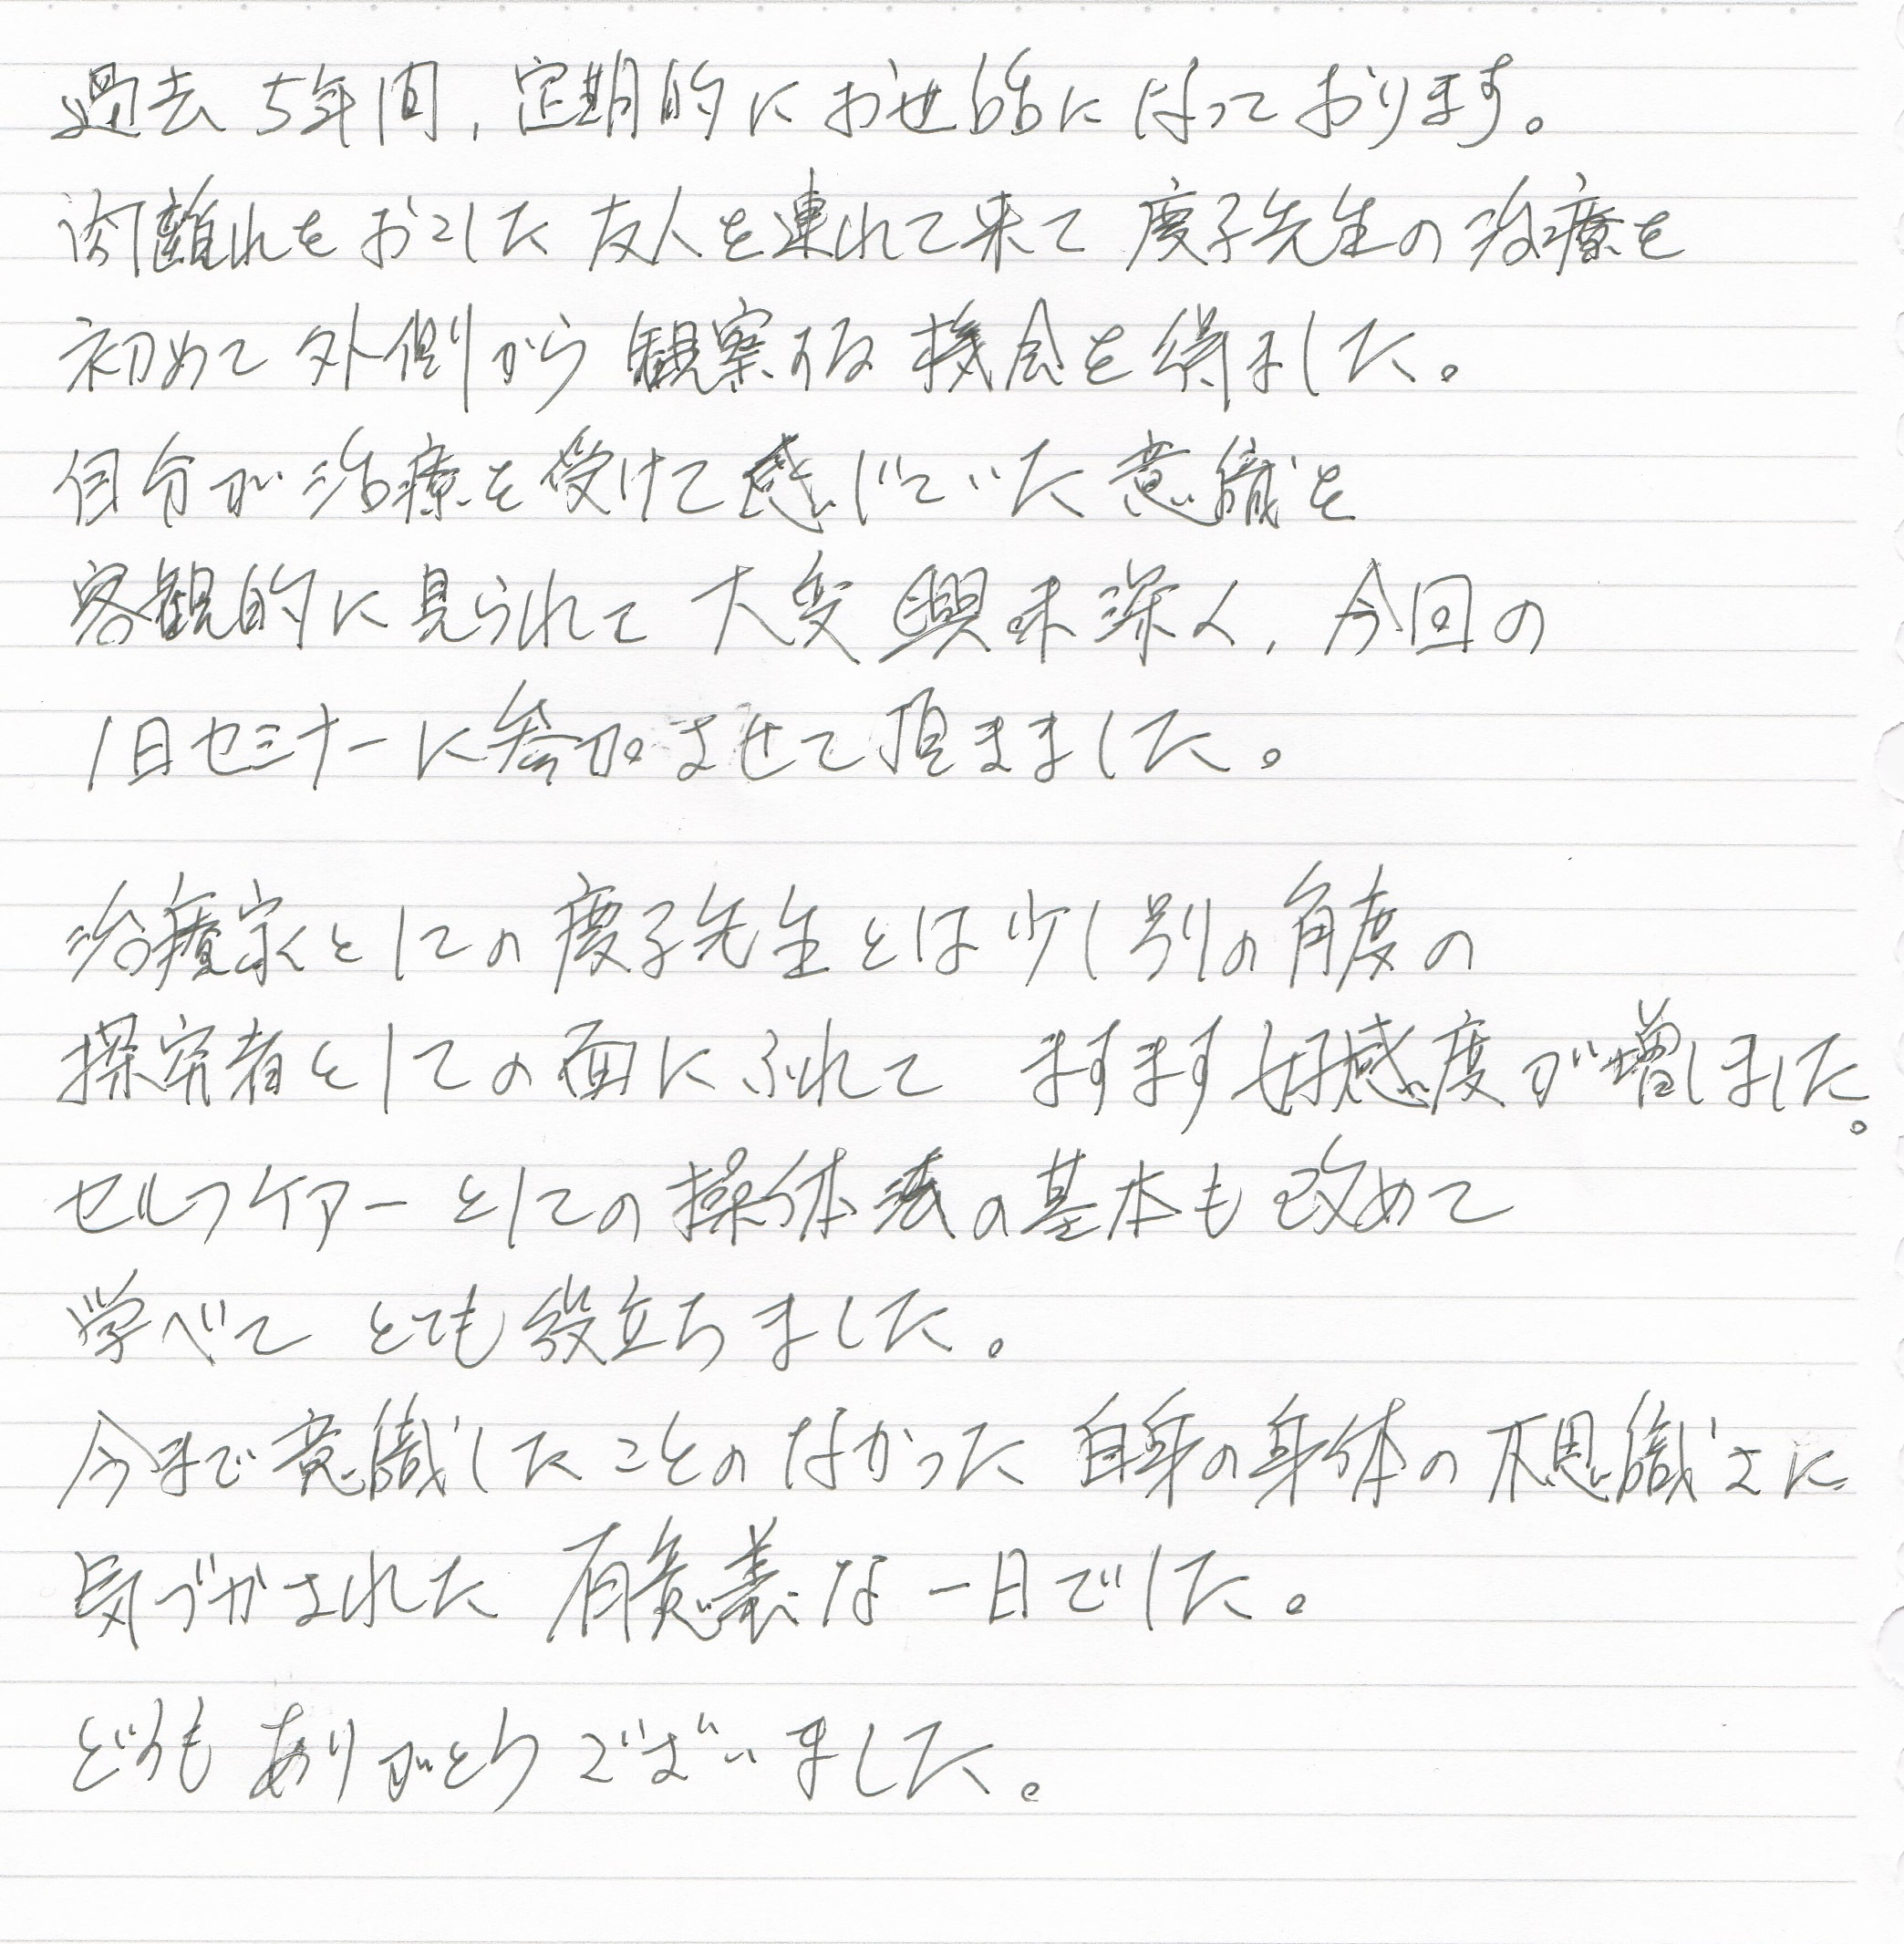 過去5年間，定期的にお世話になっております。
肉離れをおこした友人を連れて来て慶子先生の治療を
初めて外側から観察する機会を得ました。
自分が治療を受けて感じていた意識を
客観的に見られて大変興味深く，今回の
1日セミナーに参加させて頂きました。
治療家としての慶子先生とは少し別の角度の
探究者としての面にふれてますます好感度が増しました。
セルフケアーとしての操体法の基本も改めて
学べてとても役立ちました。
今まで意識したことのなかった自身の身体の不思識さに
気づかされた有意義な一日でした。
どうもありがとうございました。